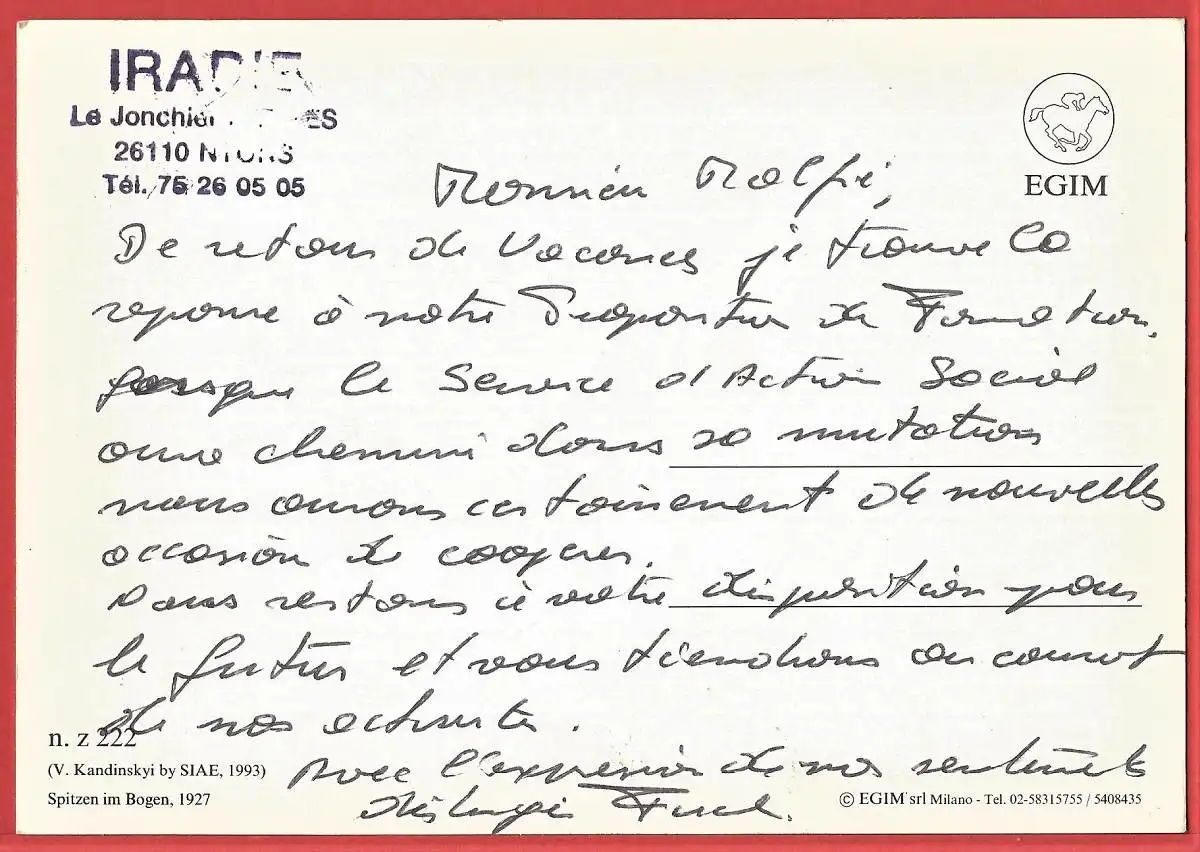 IRADIE
Le Jonchier
26110 NYONS
Tél. 75 26 05 05
EGIM
Monsieur Malfié,
De retour de vacances je trouve la
reponse à notre Proposition de Formation.
lorsque le Service d'Action Social
aura cheminé dans sa mutation
nous aurons certainement de nouvelles
occasion de cooperer.
Nous restons à votre disposition pour
le futur et vous tiendrons au courant
de nos activites.
Avec l'expression de nos sentiments
distingués
n. z 222
(V. Kandinskyi by SIAE, 1993)
Spitzen im Bogen, 1927
© EGIM srl Milano - Tel. 02-58315755 / 5408435